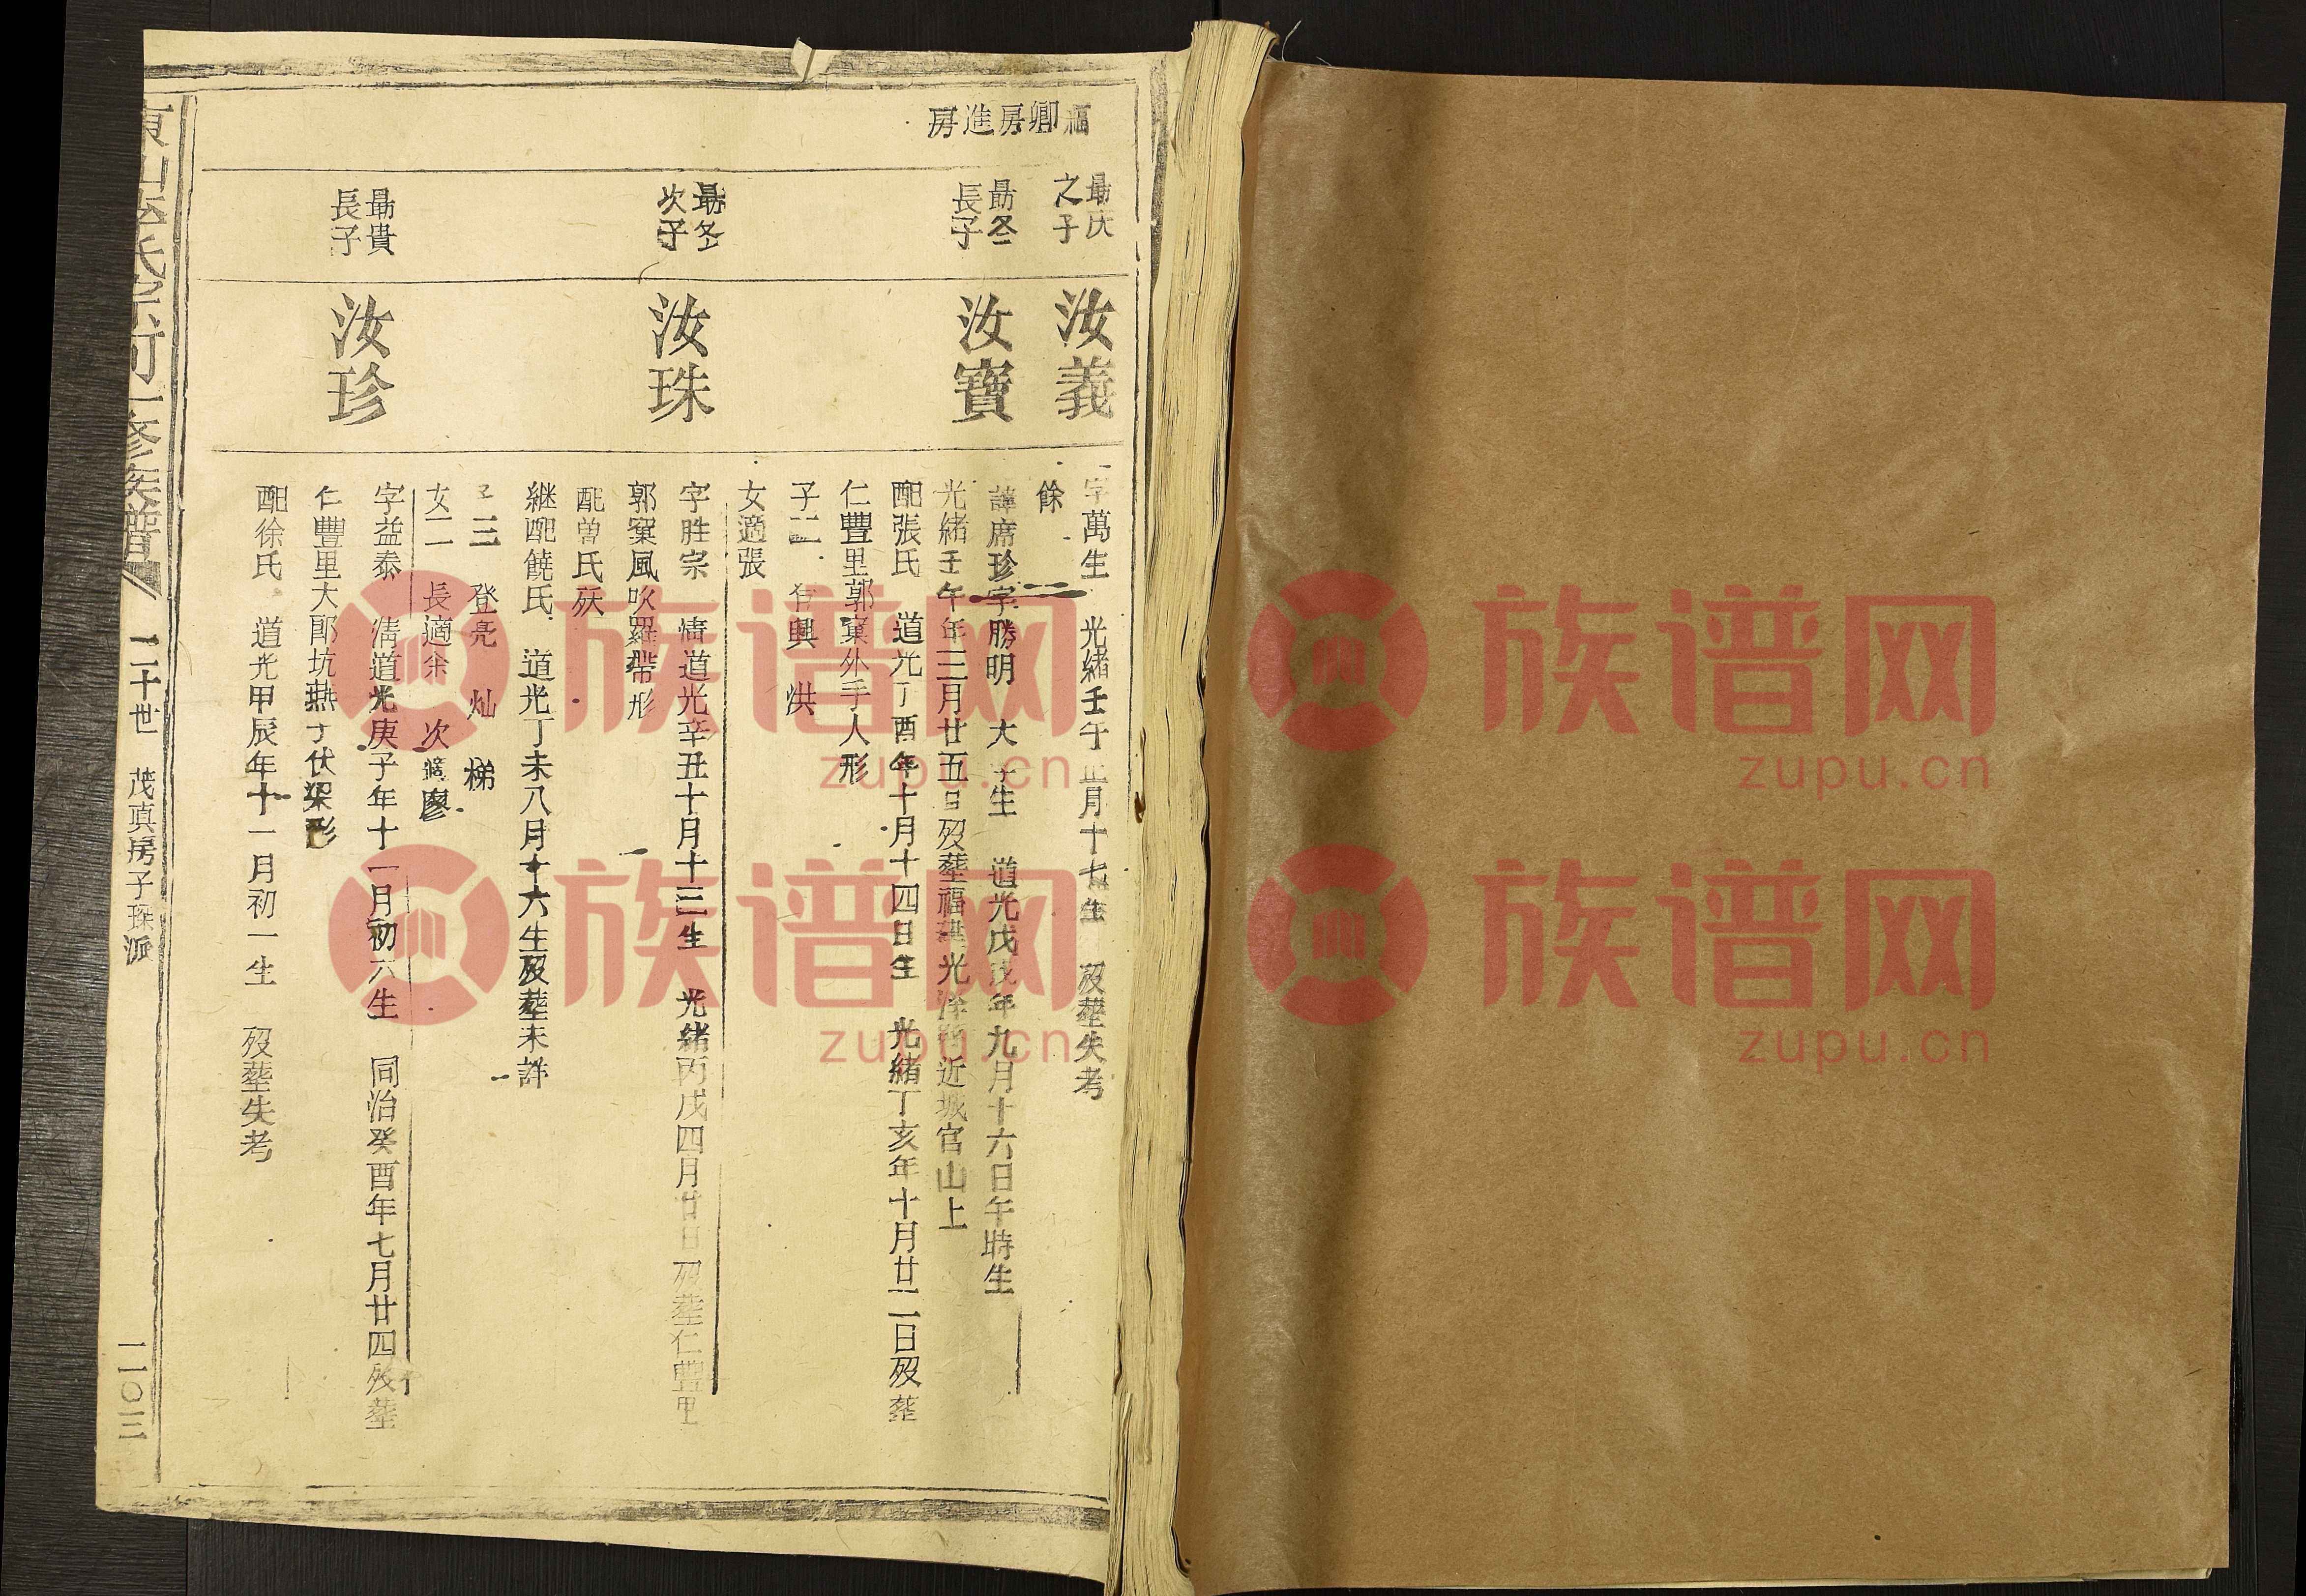 福卿房進房
最慶之子
汝義
字萬生 光緒壬午正月十七生 歿塟失考
餘
最冬長子
汝寶
諱席珍字勝明 大學生 道光戊戌年九月十六日午時生
光緒壬午年三月廿五日歿塟福建光澤縣近城官山上
配張氏 道光丁酉年十月十四日生 光緒丁亥年十月廿二日歿塟
仁豐里郭窠外手人形
子二 興 烘
女適張
最冬次子
汝珠
字胜宗 清道光辛丑十月十三生 光緒丙戌四月廿日歿塟仁豐里
郭窠風吹羅帶形
配曾氏 殀
継配饒氏 道光丁未八月十六生歿塟未詳
子三 登亮 灿 梯
女二 長適余 次適廖
最貴長子
汝珍
字益泰 清道光庚子年十一月初六生 同治癸酉年七月廿四歿塟
仁豐里大郎坑燕子伏梁形
配徐氏 道光甲辰年十一月初一生 歿塟失考
東山 氏宗 修族譜
二十世 茂真房子琛派
二〇三
族谱网
zupu.cn
族谱网
zupu.cn
族谱网
zupu.cn
族谱网
zupu.cn